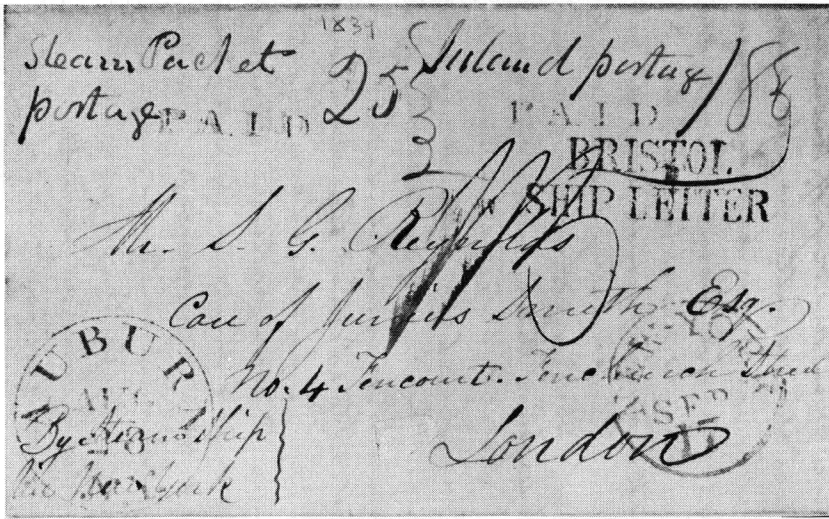 1839
Steam Packet
postage
PAID
25
Inland postage
PAID
BRISTOL
SHIP LETTER
Mr. S. G. Reynolds
Care of Junius Smith Esq.
No. 4 Fencourt. Fenchurch Street
London
AUBUR
AUG
By Steam Ship
via New York
NEW-YORK
SEP